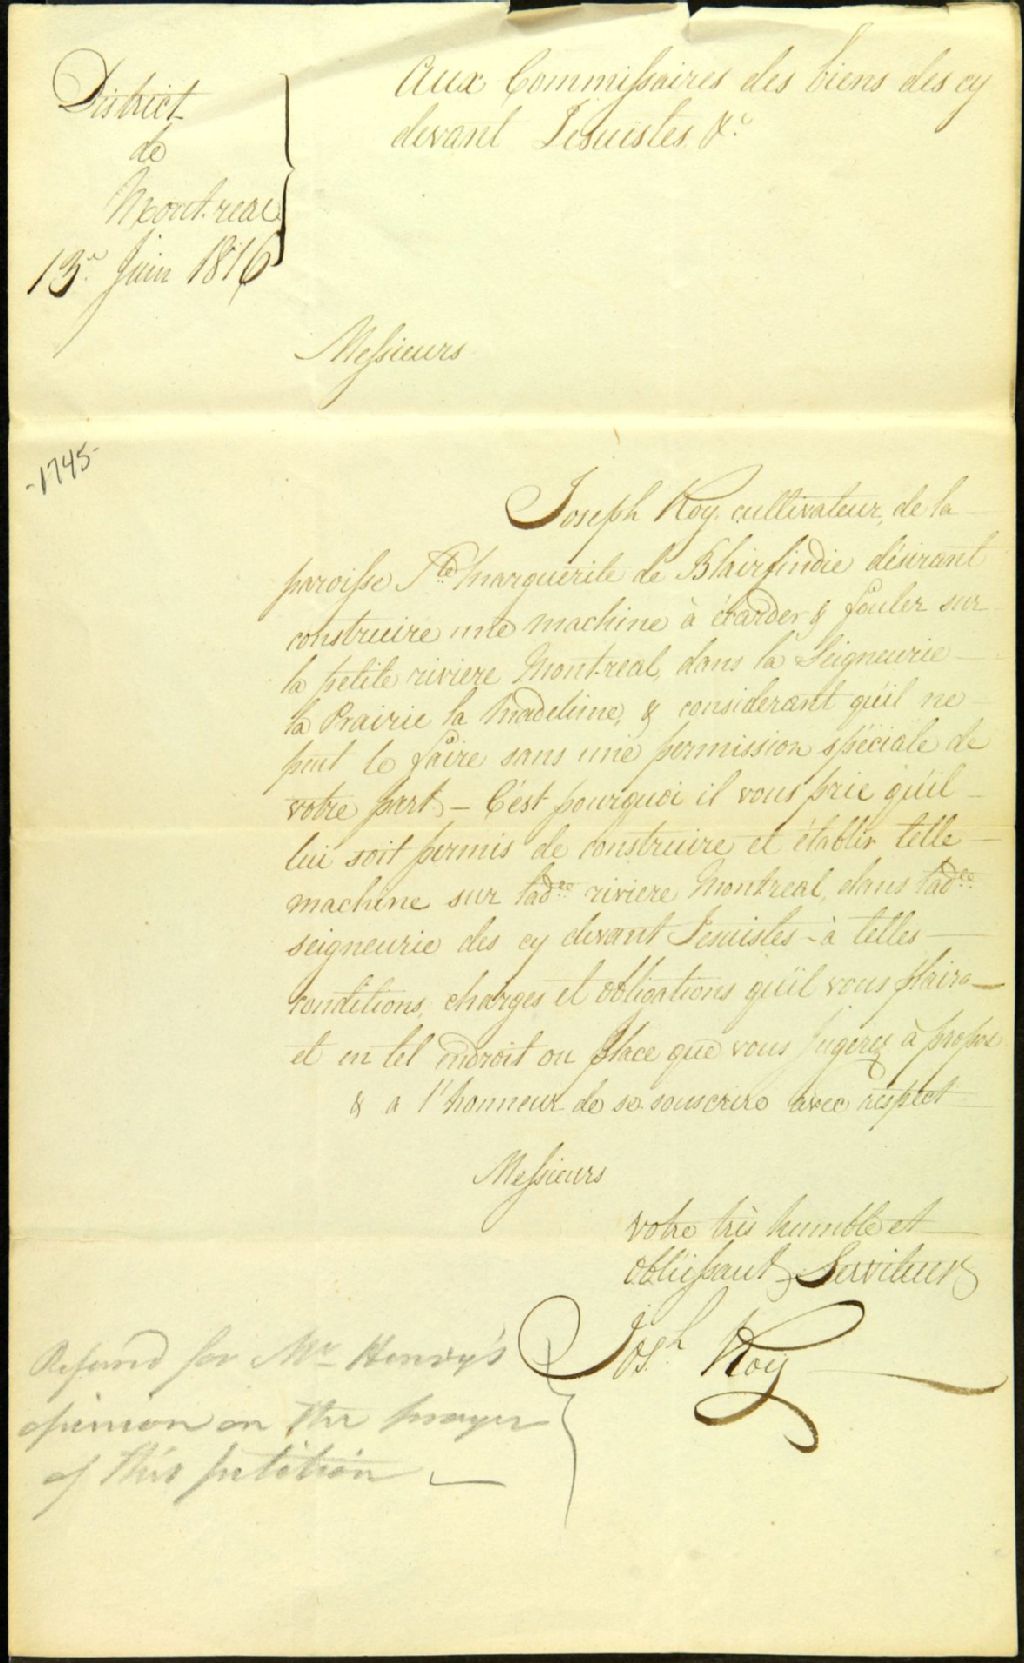 District
de
Montreal
13.e Juin 1816
Aux Commissaires des biens des cy
devant Jesuistes &c
Messieurs
-1745-
Joseph Roy cultivateur, de la
paroisse Ste Marguerite de Blairfindie désirant
construire une machine à carder & fouler sur
la petite riviere Montreal, dans la Seigneurie
la Prairie la Madeleine, & considerant qu'il ne
peut le faire sans une permission spéciale de
votre part – C'est pourquoi il vous prie qu'il
lui soit permis de construire et établir telle
machine sur lade riviere Montreal, dans lade
seigneurie des cy devant Jesuistes – à telles
conditions, charges et obligations qu'il vous plaira
et en tel endroit ou place que vous jugerez à propos
& a l'honneur de se souscrire avec respect
Messieurs
votre très humble et
obéissant Serviteur
Josh. Roy
for Mr Henry's
opinion on the prayer
of this petition